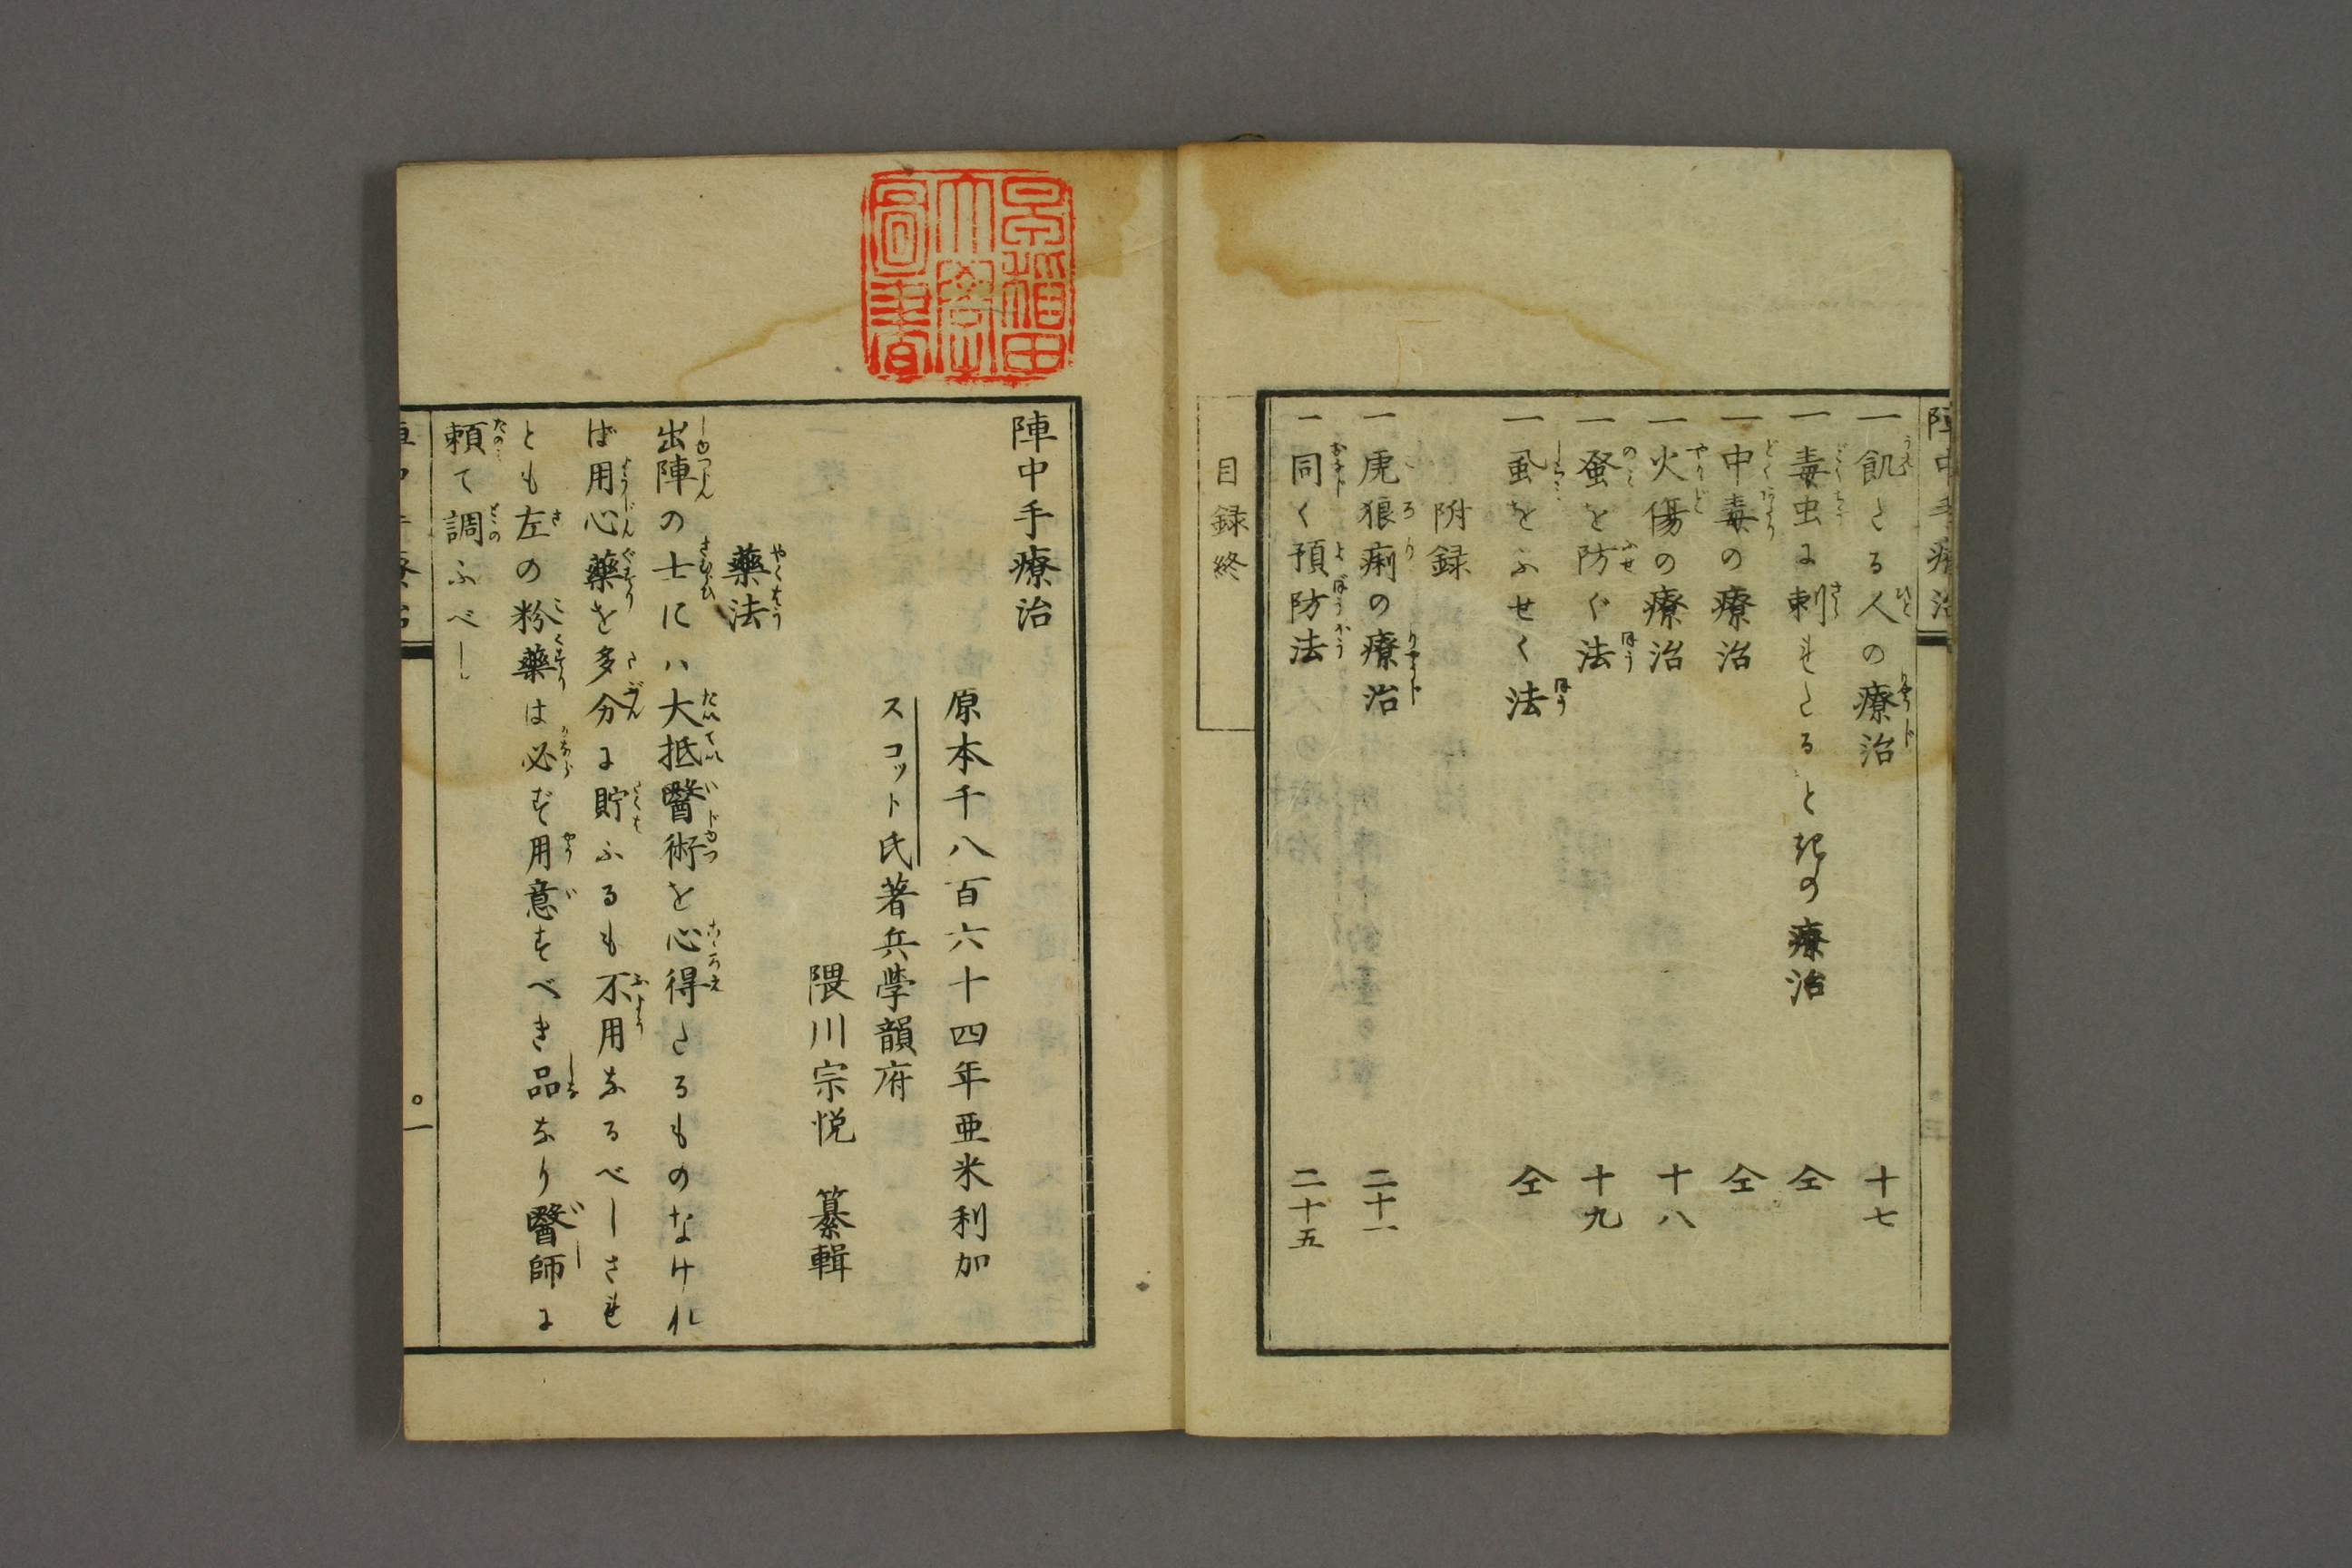 一飢たる人の療治 十七
一毒虫に刺れたるときの療治 仝
一中毒の療治 仝
一火傷の療治 十八
一蚤を防ぐ法 十九
一虱をふせく法 仝
附録
一虎狼痢の療治 二十一
一同く預防法 二十五
目録終
早稲田大学図書
陣中手療治
原本千八百六十四年亜米利加
スコット氏著兵學韻府
隈川宗悦 纂輯
藥法
出陣の士にハ大抵醫術を心得たるものなけれ
ば用心藥を多分に貯ふるも不用なるべしされ
とも左の粉藥は必ず用意すべき品なり醫師に
頼て調ふべし
陣中手療治
〇一